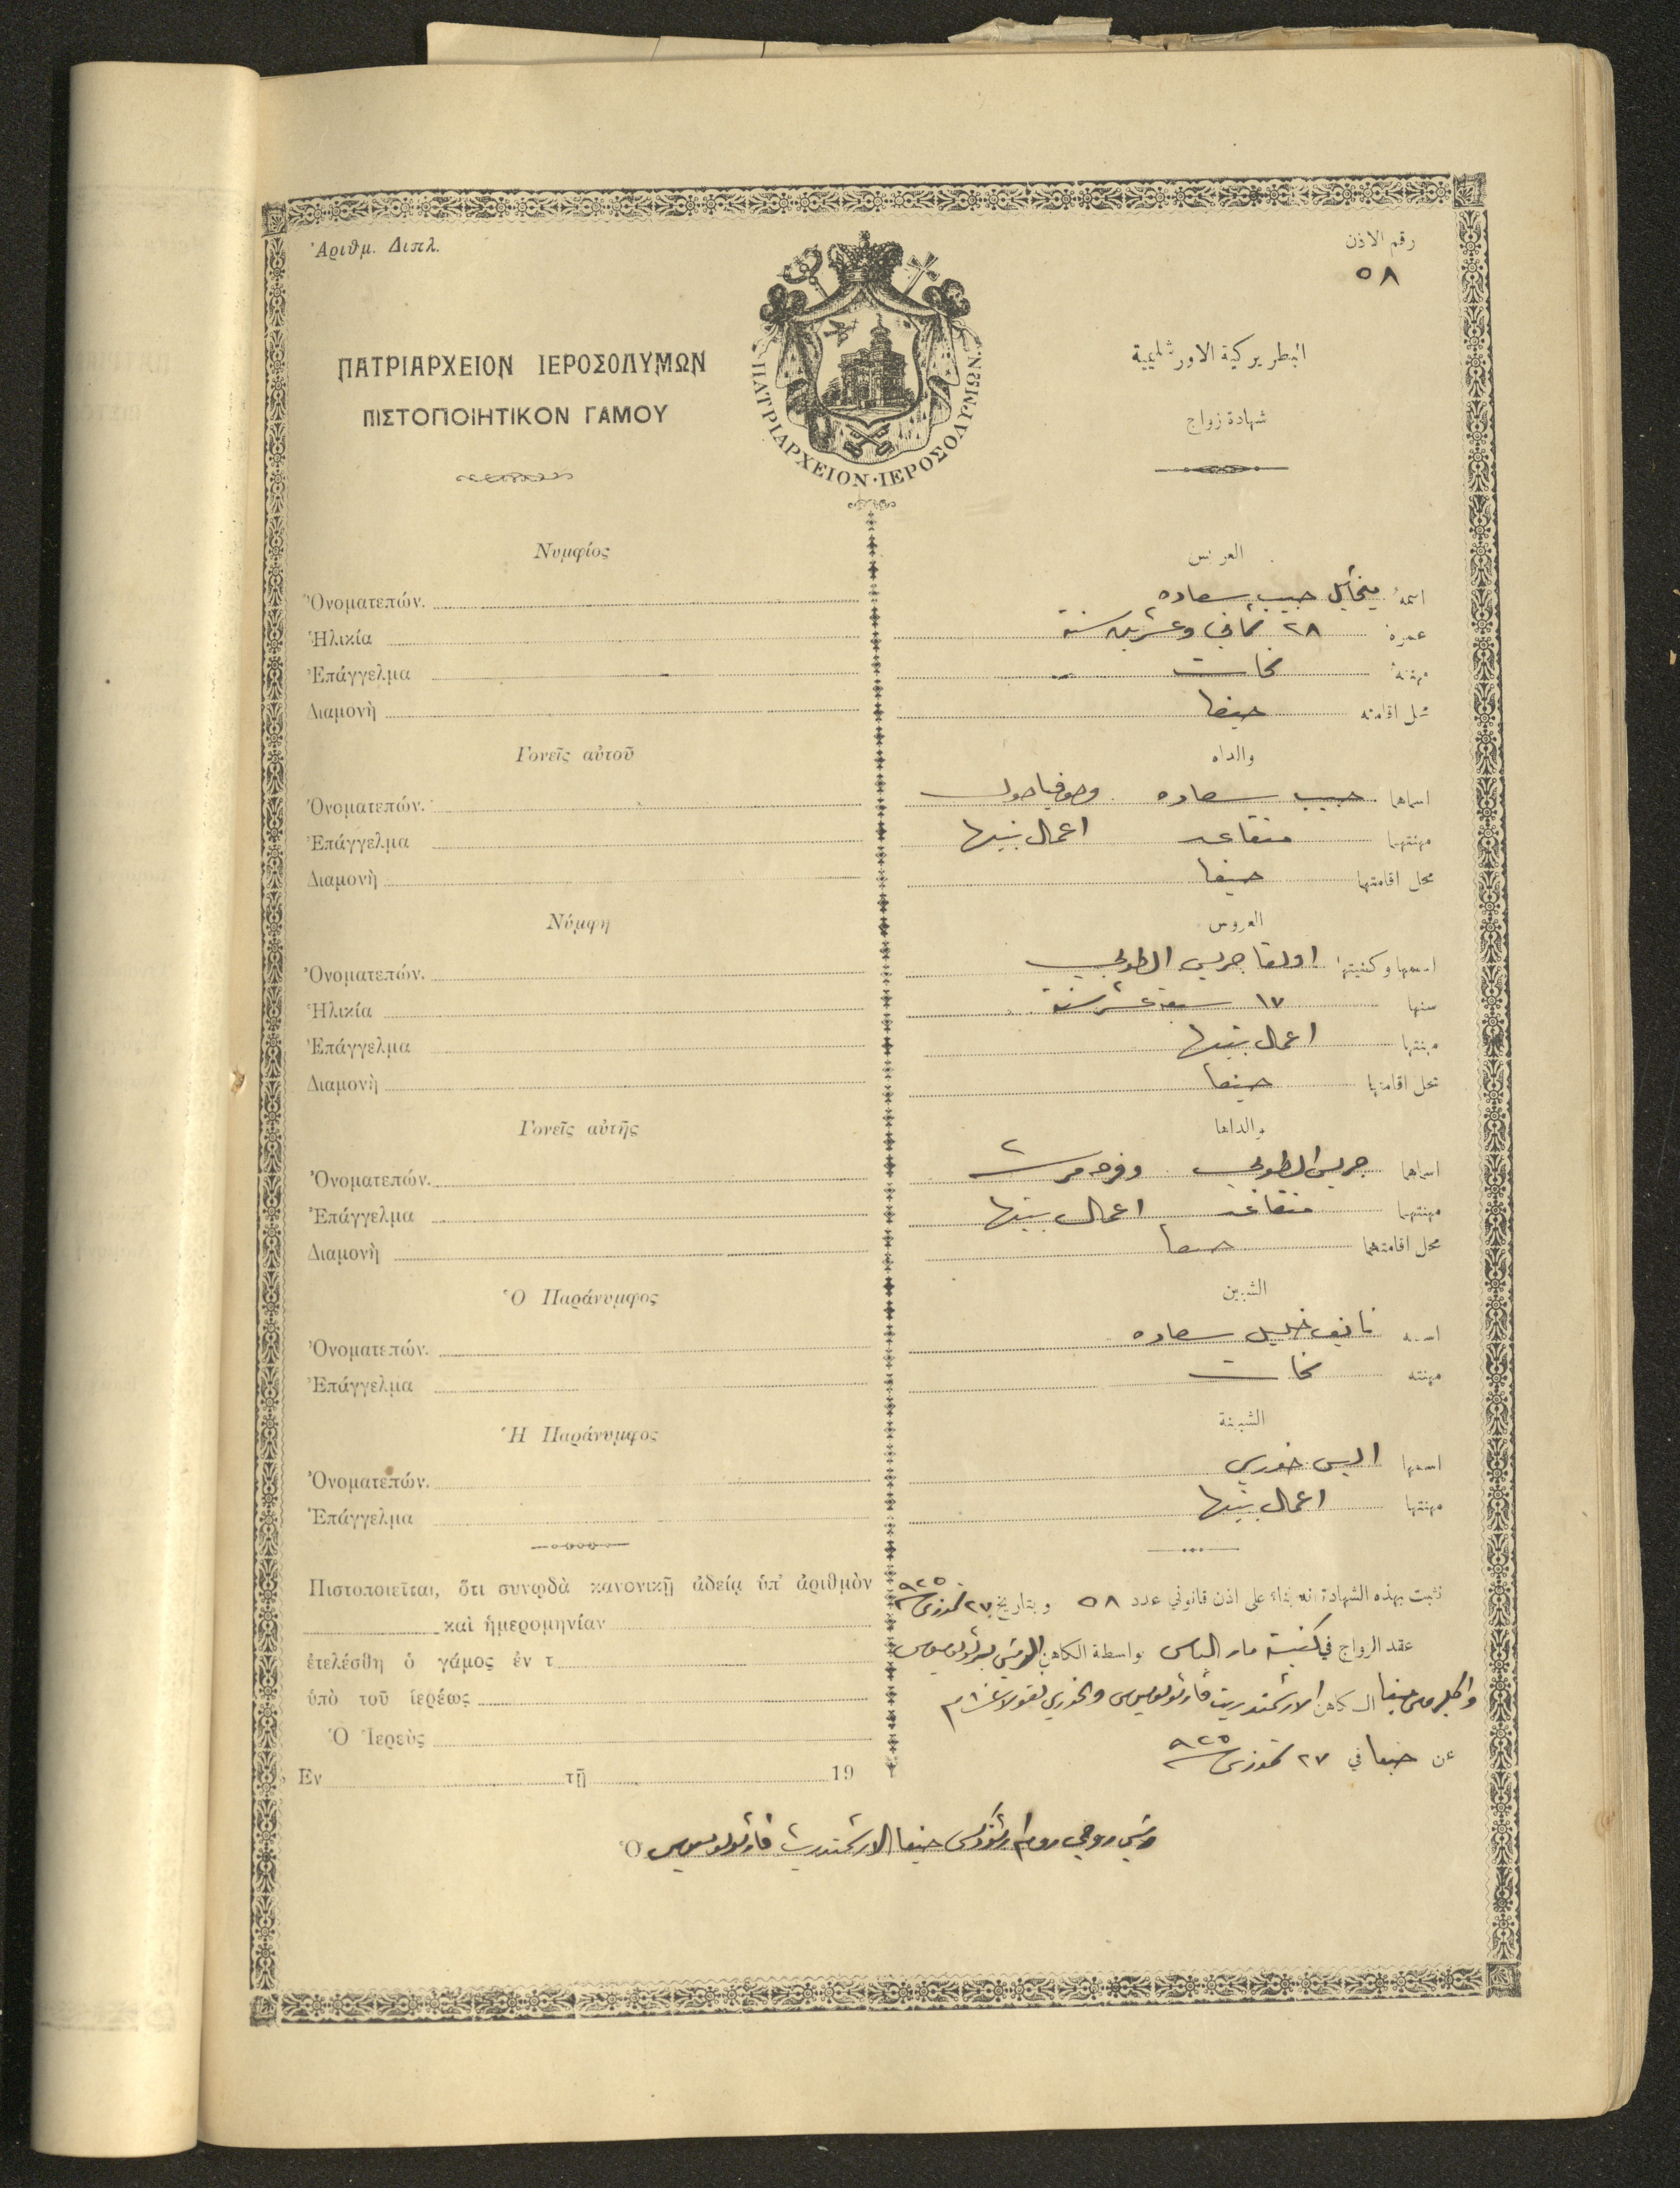 Ἀριθμ. Διπλ.
رقم الاذن
٥٨
ΠΑΤΡΙΑΡΧΕΙΟΝ ΙΕΡΟΣΟΛΥΜΩΝ
البطريركية الاورشليمية
ΠΙΣΤΟΠΟΙΗΤΙΚΟΝ ΓΑΜΟΥ
شهادة زواج
ΠΑΤΡΙΑΡΧΕΙΟΝ·ΙΕΡΟΣΟΛΥΜΩΝ.
Νυμφίος
Ὀνοματεπών.
Ἡλικία
Ἐπάγγελμα
Διαμονὴ
Γονεῖς αὐτοῦ
Ὀνοματεπών.
Ἐπάγγελμα
Διαμονὴ
Νύμφη
Ὀνοματεπών.
Ἡλικία
Ἐπάγγελμα
Διαμονὴ
Γονεῖς αὐτῆς
Ὀνοματεπών.
Ἐπάγγελμα
Διαμονὴ
Ὁ Παράνυμφος
Ὀνοματεπών.
Ἐπάγγελμα
Ἡ Παράνυμφος
Ὀνοματεπών.
Ἐπάγγελμα
Πιστοποιεῖται, ὅτι συνῳδὰ κανονικῇ ἀδείᾳ ὑπ' ἀριθμὸν
καὶ ἡμερομηνίαν
ἐτελέσθη ὁ γάμος ἐν τ
ὑπὸ τοῦ ἱερέως
Ὁ Ἱερεὺς
Ἐν τῇ 19
العريس
اسمه ميخائيل حبيب سعاده
عمره ٢٨ ثماني وعشرين سنة
مهنته نحات
محل اقامته حيفا
والداه
اسماهما حبيب سعاده وصوفيا
مهنتهما متقاعد اعمال بيتها
محل اقامتهما حيفا
العروس
اسمها وكنيتها اولغا جريس الطوبي
سنها ١٧ سبعة عشر سنة
مهنتها اعمال بيتها
محل اقامتها حيفا
والداها
اسماهما جريس الطوبي وفرحه
مهنتهما متقاعد اعمال بيتها
محل اقامتهما حيفا
الشبين
اسمه نايف خليل سعاده
مهنته نحات
الشبينة
اسمها اليس خوري
مهنتها اعمال بيتها
نثبت بهذه الشهادة انه بناء على اذن قانوني عدد ٥٨ وبتاريخ ٢٧ تموز سنة ٩٢٥
عقد الزواج في كنيسة مار الياس بواسطة الكاهن
الكاهن الارشمندريت والخوري نقولا
عن حيفا في ٢٧ تموز سنة ٩٢٥
Ὁ رئيس روحي روم ارثوذكس حيفا الارشمندريت